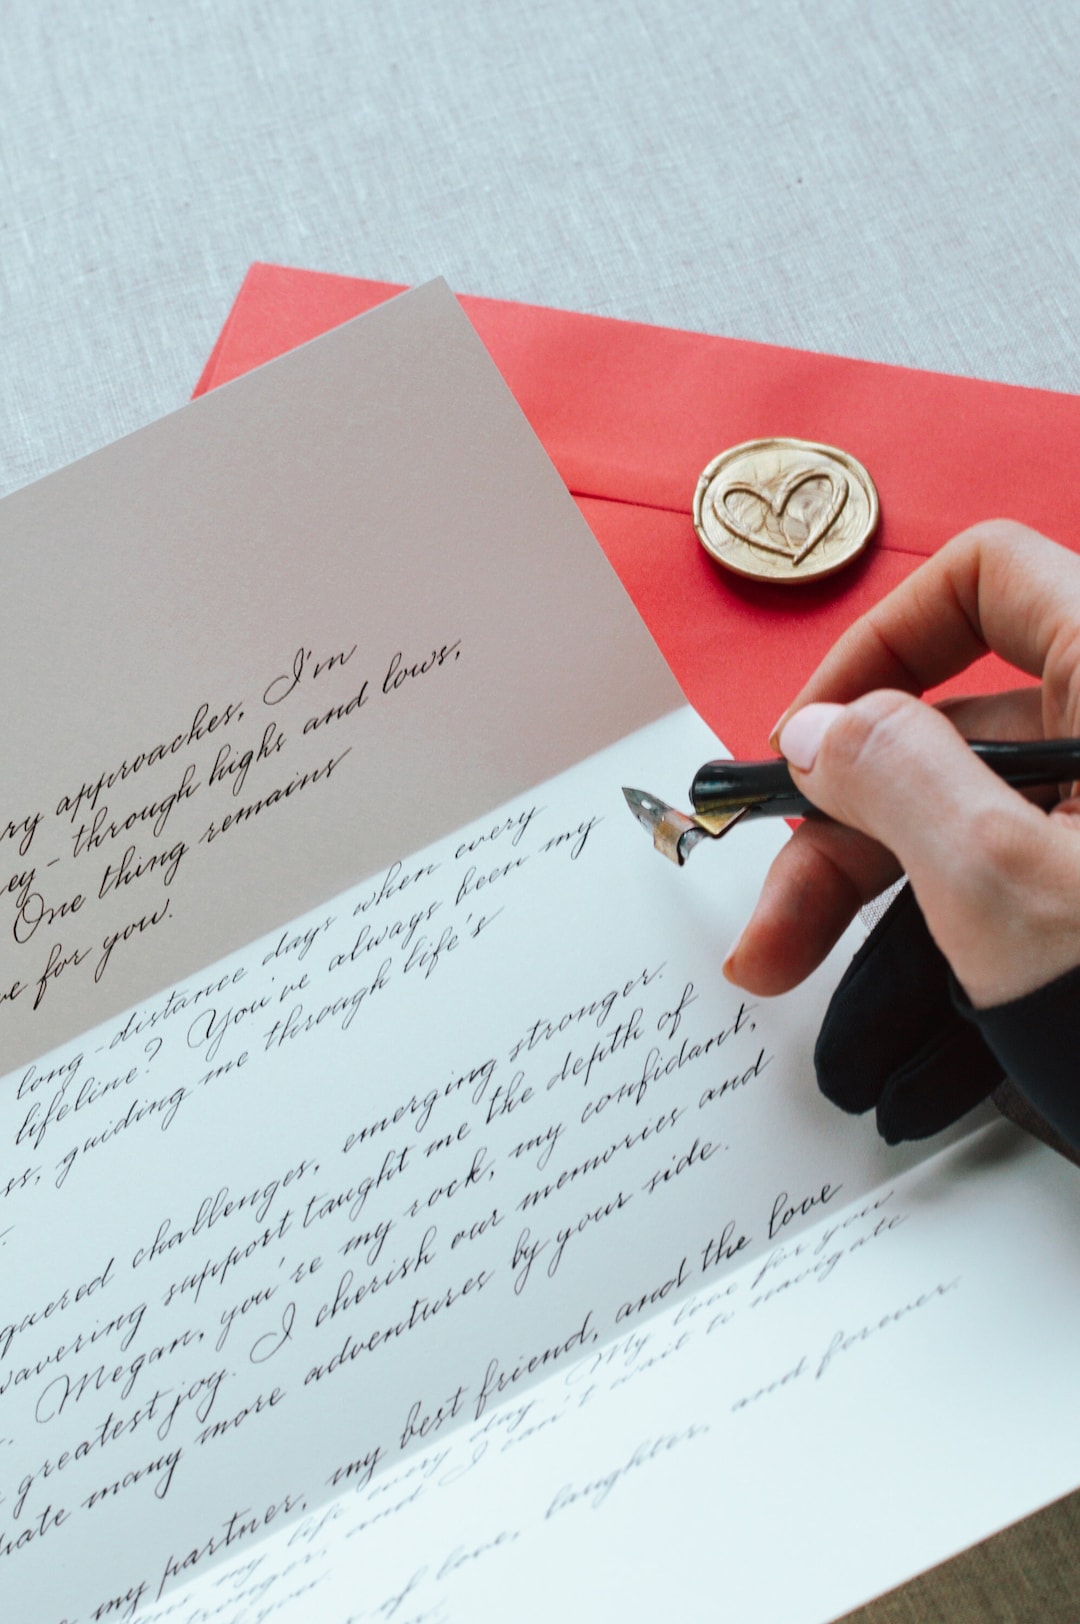 ry approaches, I'm
ey - through highs and lows,
One thing remains
ve for you.
long-distance days when every
lifeline? You've always been my
ss, guiding me through life's
quered challenges, emerging stronger.
wavering support taught me the depth of
Megan, you're my rock, my confidant,
greatest joy. I cherish our memories and
many more adventures by your side.
my partner, my best friend, and the love
my life every day. My love for you
stronger, and I can't wait to navigate
you.
of love, laughter, and forever.